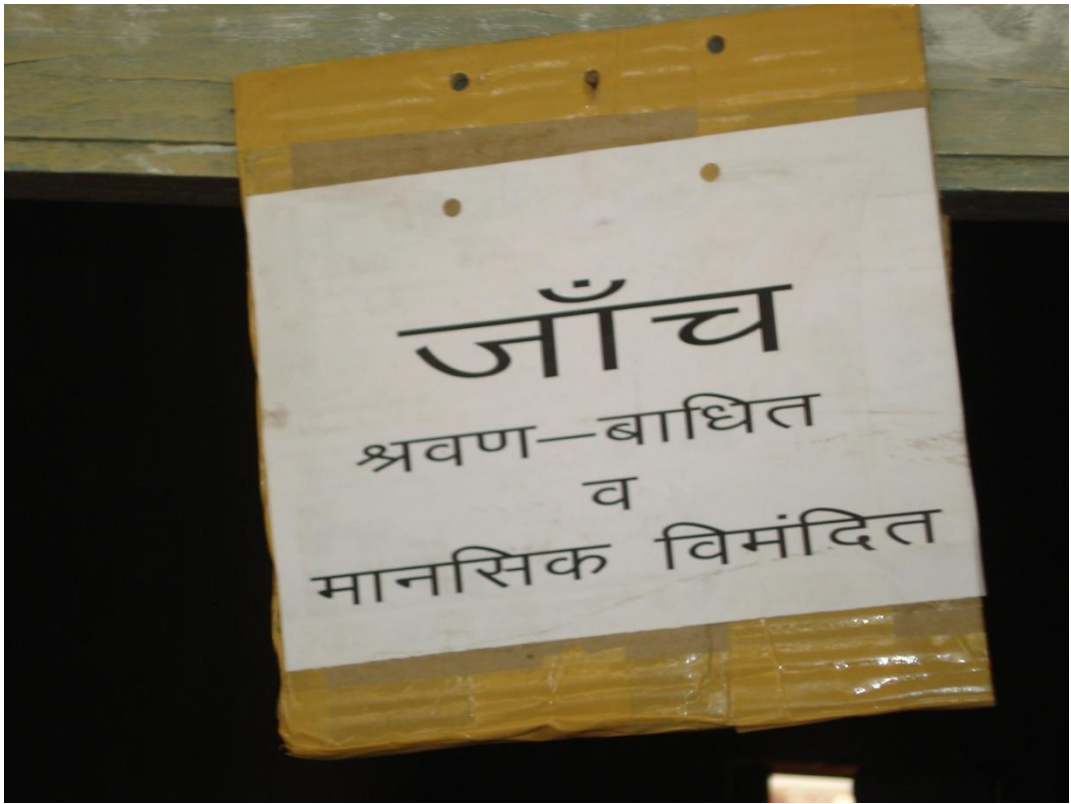 जाँच
श्रवण–बाधित
व
मानसिक विमंदित